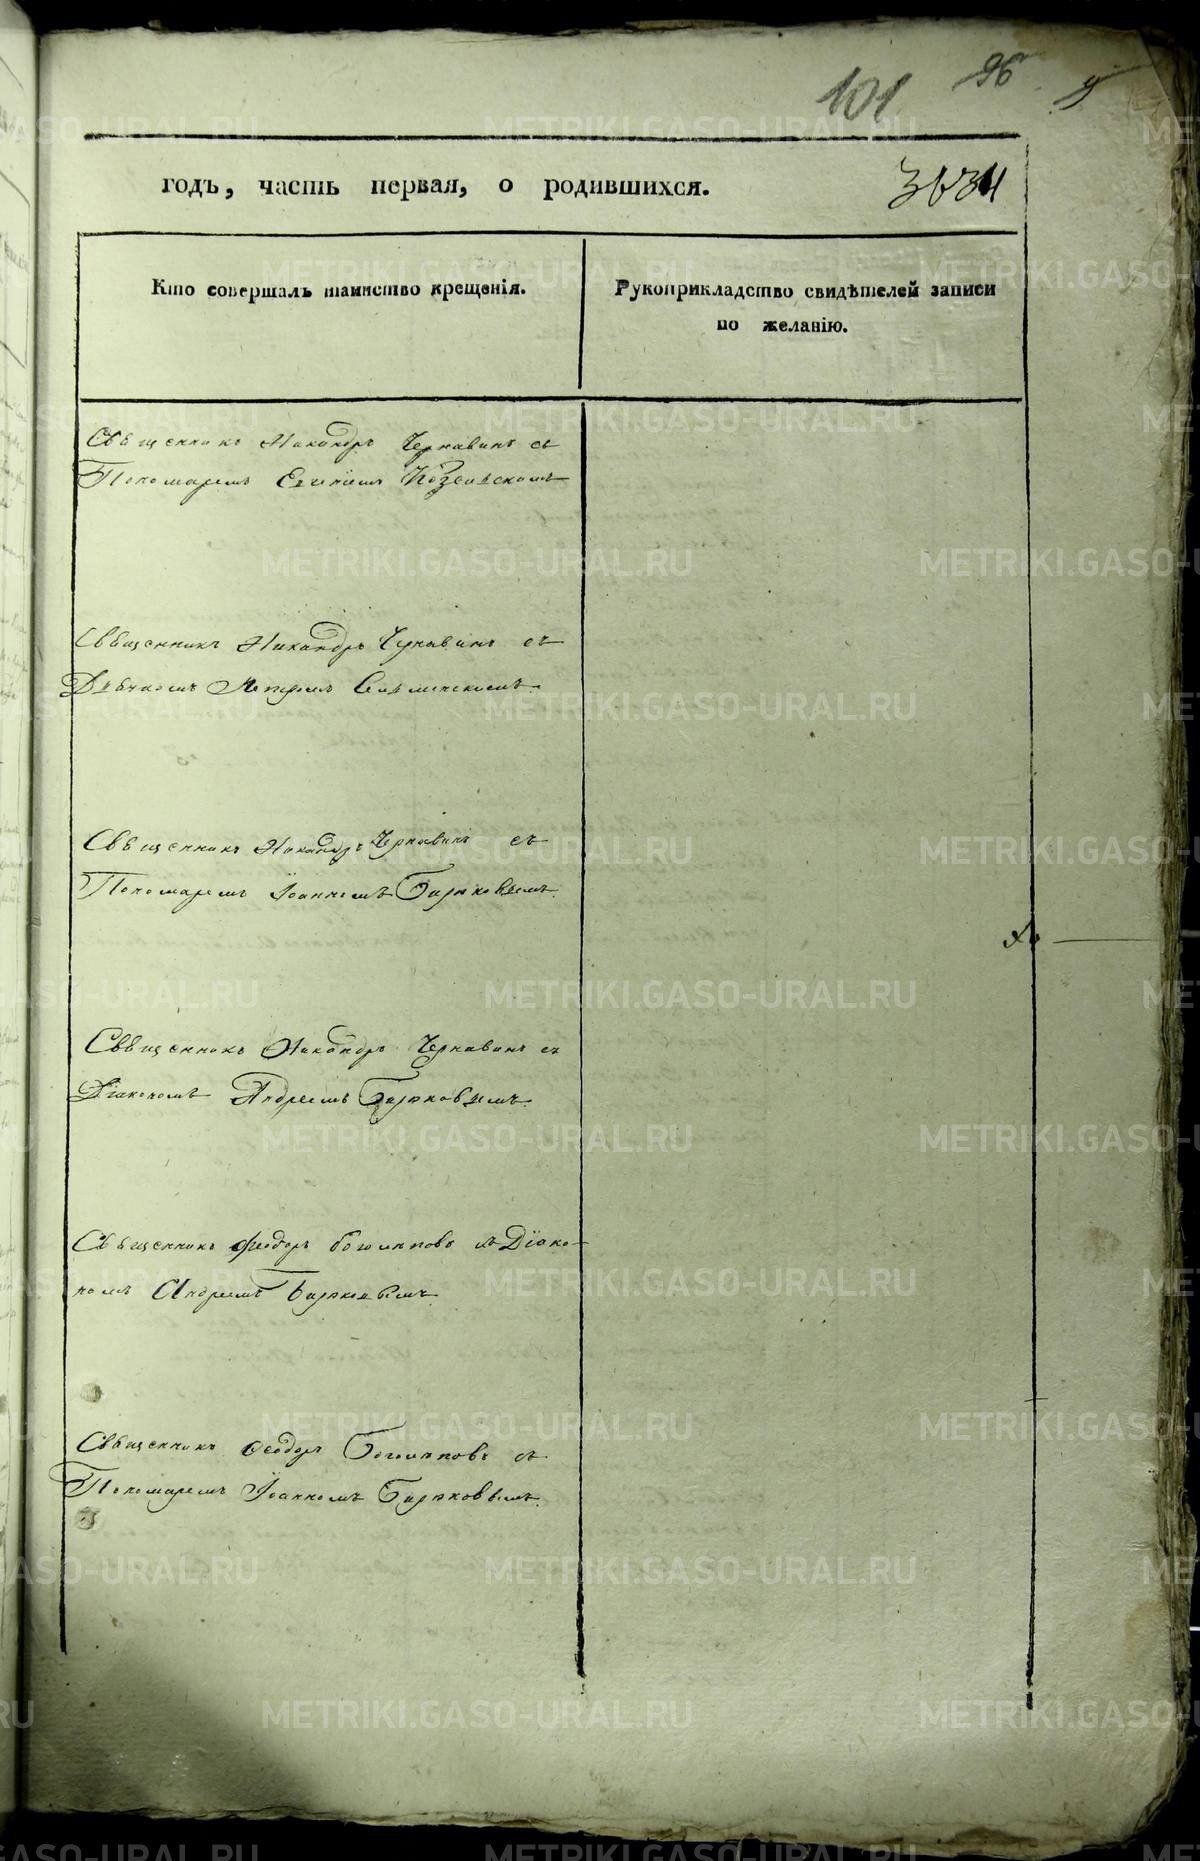 101 96
годъ, часть первая, о родившихся.
Кто совершалъ таинство крещенія.
Рукоприкладство свидѣтелей записи
по желанію.
Священникъ Никандръ Чернавинъ съ
Пономаремъ Евгеніем
Священникъ Никандръ Чернавинъ съ
Дьячкомъ Петромъ
Священникъ Никандръ Чернавинъ съ
Пономаремъ Іоанномъ Бирюковымъ.
Священникъ Никандръ Чернавинъ съ
Діакономъ Андреемъ Бирюковымъ.
Священникъ Феодоръ Богомповъ съ Діако-
номъ Андреемъ Бирюковымъ.
Священникъ Феодоръ съ
Пономаремъ Іоанномъ Бирюковымъ.
METRIKI.GASO-URAL.RU